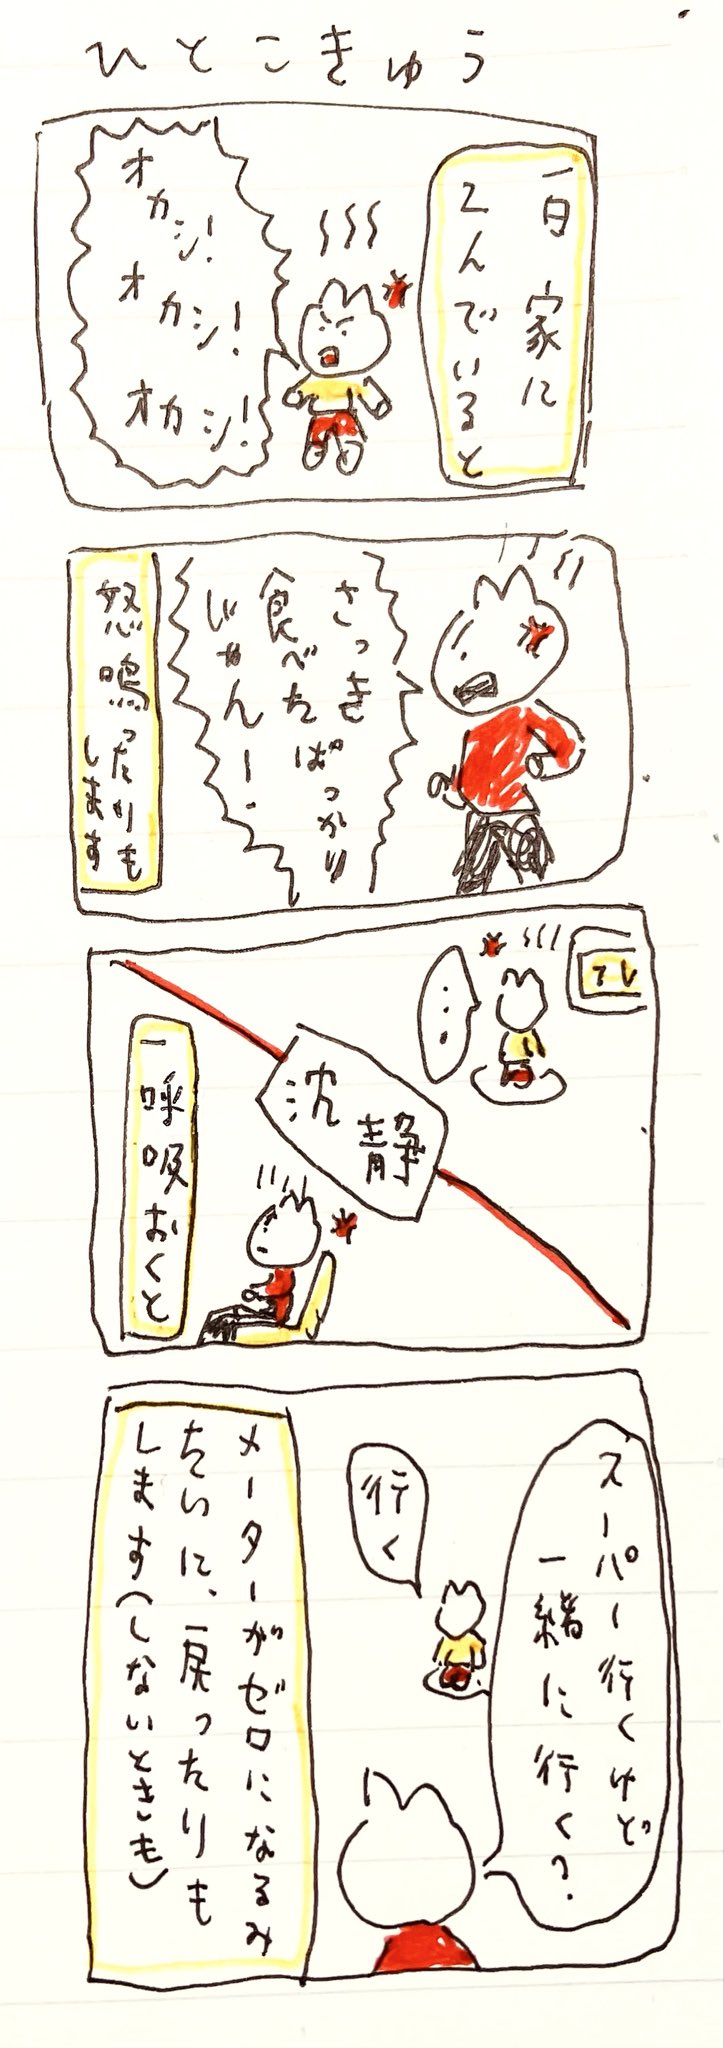 ひとこきゅう
一日 家に
こんでいると
オカシ!
オカシ!
オカシ!
さっき
食べたばっかり
じゃんー!
怒鳴ったりも
します
テレ
…
沈静
一呼吸おくと
スーパー行くけど
一緒に行く?
行く
メーターがゼロになるみ
たいに、戻ったりも
します(しないときも)